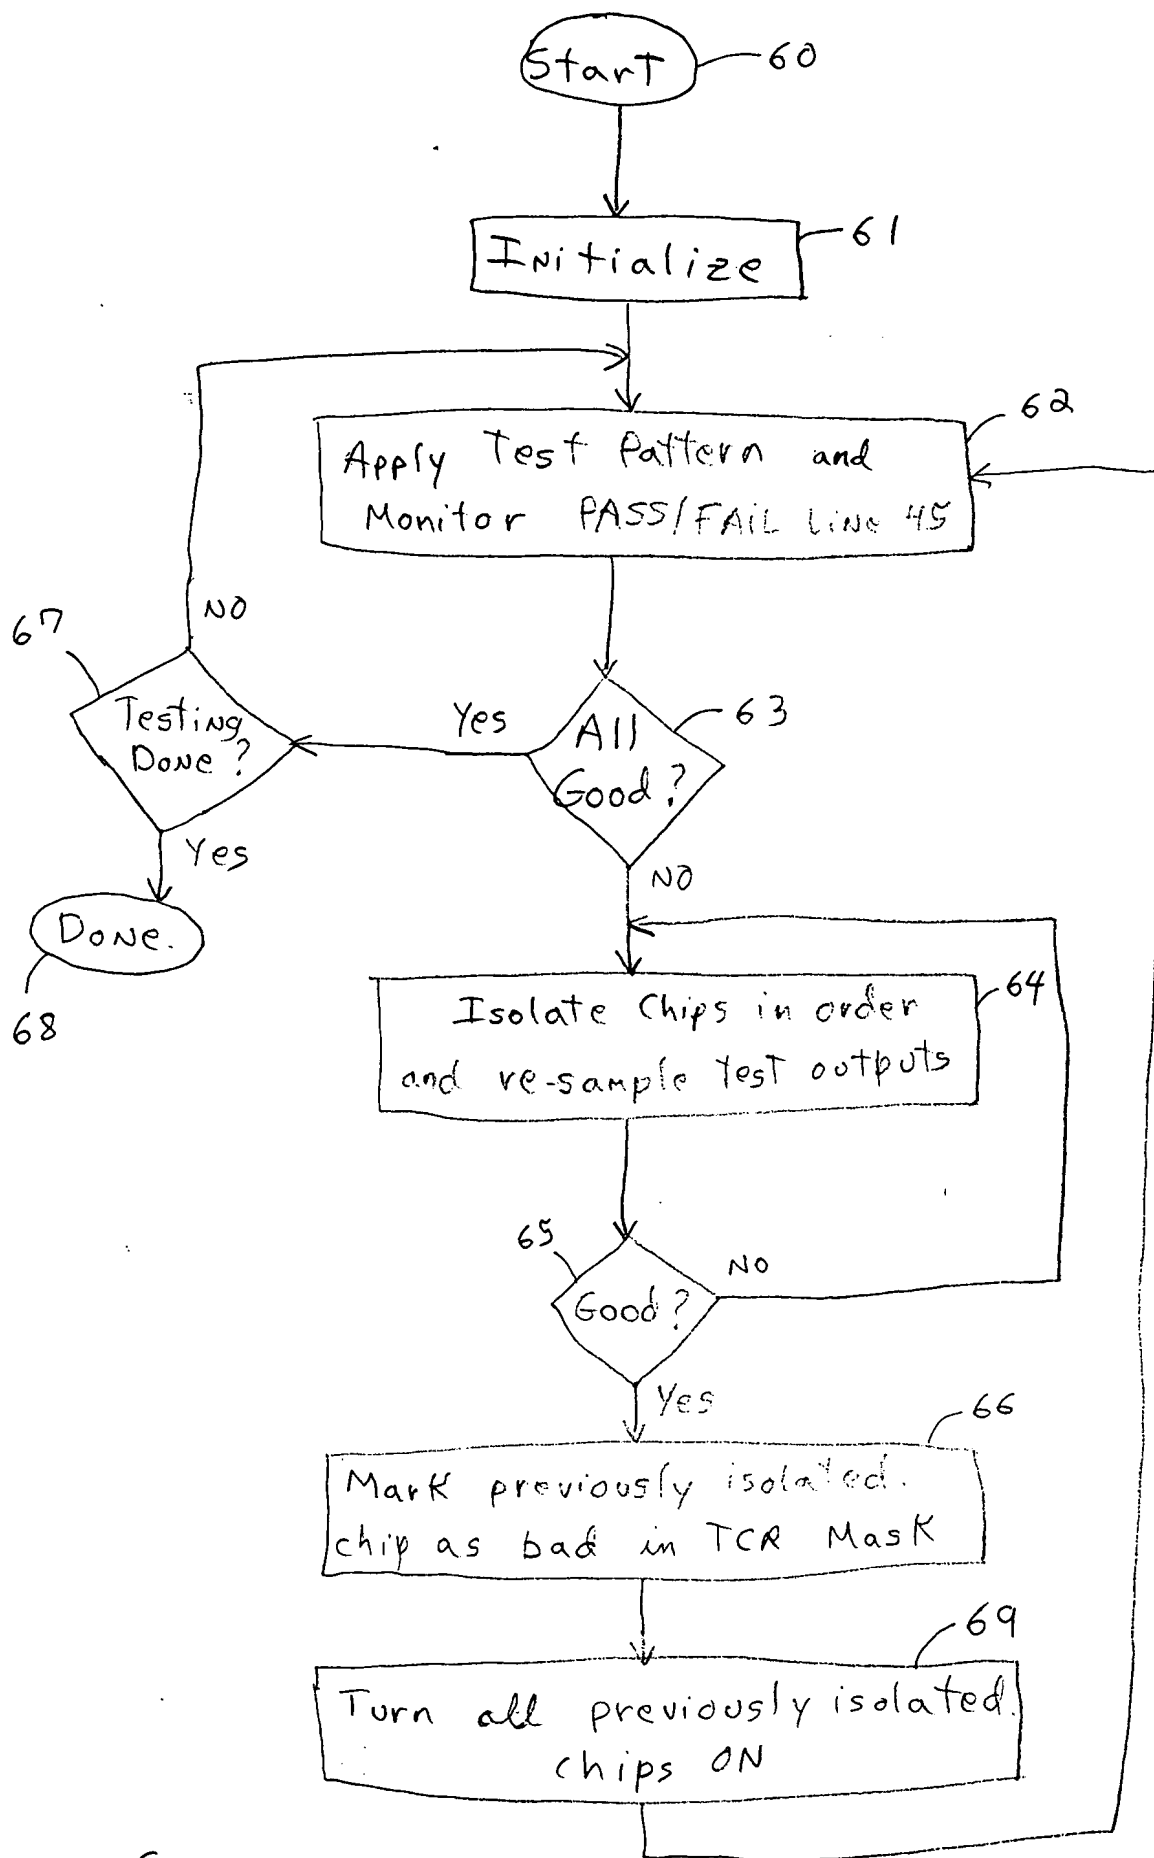 Start
60
Initialize
61
62
Apply Test Pattern and
Monitor PASS/FAIL Line 45
NO
67
Testing
Done?
Yes
All
Good?
63
Yes
NO
Done.
68
64
Isolate Chips in order
and re-sample Test outputs
65
Good?
NO
Yes
66
Mark previously isolated.
chip as bad in TCR Mask
69
Turn all previously isolated.
chips ON